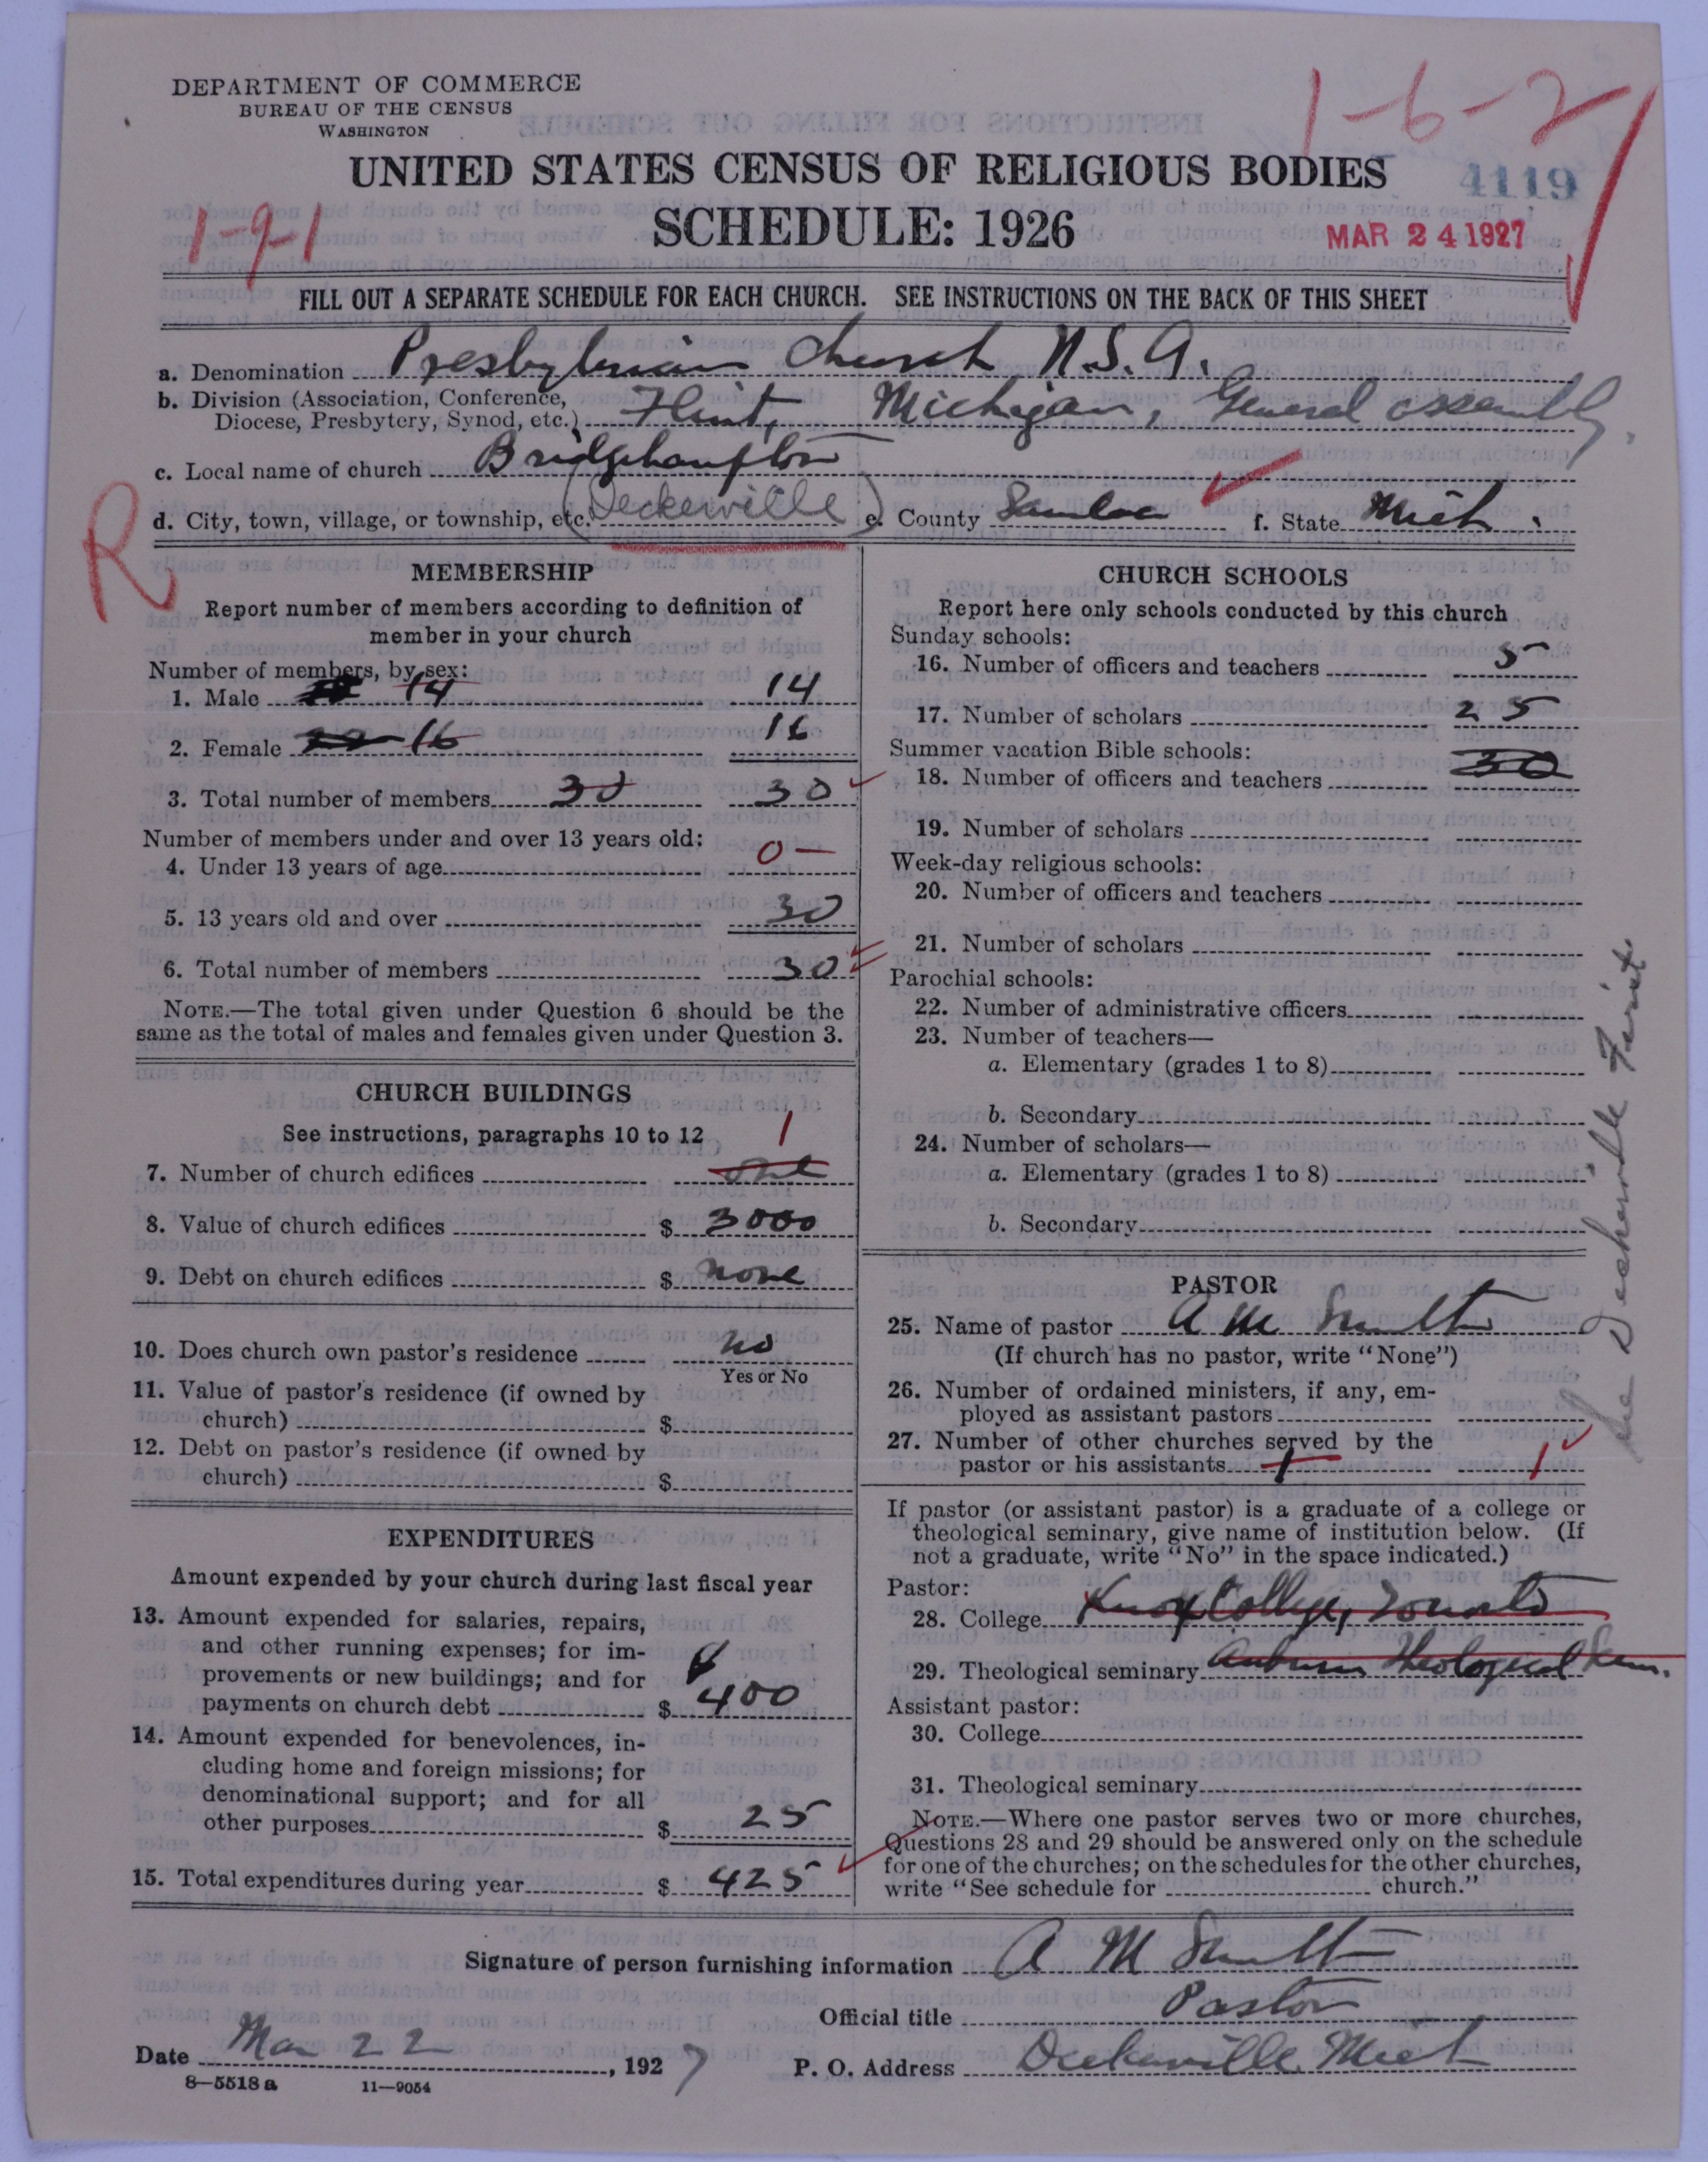 DEPARTMENT OF COMMERCE
BUREAU OF THE CENSUS
WASHINGTON
1-6-2
UNITED STATES CENSUS OF RELIGIOUS BODIES
4119
1-9-1
SCHEDULE: 1926
MAR 24 1927
FILL OUT A SEPARATE SCHEDULE FOR EACH CHURCH. SEE INSTRUCTIONS ON THE BACK OF THIS SHEET
a. Denomination Presbyterian Church U.S.A.
b. Division (Association, Conference,
Diocese, Presbytery, Synod, etc.) Flint, Michigan, General Assembly
c. Local name of church Bridgehampton
d. City, town, village, or township, etc. (Deckerville) e. County Sanilac f. State Mich.
R
MEMBERSHIP
Report number of members according to definition of
member in your church
Number of members, by sex:
1. Male 14 14
2. Female 16 16
3. Total number of members 30 30
Number of members under and over 13 years old:
4. Under 13 years of age 0 —
5. 13 years old and over 30
6. Total number of members 30
NOTE.—The total given under Question 6 should be the
same as the total of males and females given under Question 3.
CHURCH BUILDINGS
See instructions, paragraphs 10 to 12 1
7. Number of church edifices one
8. Value of church edifices $ 3000
9. Debt on church edifices $ none
10. Does church own pastor's residence no
Yes or No
11. Value of pastor's residence (if owned by
church) $
12. Debt on pastor's residence (if owned by
church) $
EXPENDITURES
Amount expended by your church during last fiscal year
13. Amount expended for salaries, repairs,
and other running expenses; for im-
provements or new buildings; and for
payments on church debt $ 400
14. Amount expended for benevolences, in-
cluding home and foreign missions; for
denominational support; and for all
other purposes $ 25
15. Total expenditures during year $ 425
CHURCH SCHOOLS
Report here only schools conducted by this church
Sunday schools:
16. Number of officers and teachers 5
17. Number of scholars 25
Summer vacation Bible schools:
18. Number of officers and teachers 30
19. Number of scholars
Week-day religious schools:
20. Number of officers and teachers
21. Number of scholars
Parochial schools:
22. Number of administrative officers
23. Number of teachers—
a. Elementary (grades 1 to 8)
b. Secondary
24. Number of scholars—
a. Elementary (grades 1 to 8)
b. Secondary
PASTOR
25. Name of pastor A M Smith
(If church has no pastor, write "None")
26. Number of ordained ministers, if any, em-
ployed as assistant pastors
27. Number of other churches served by the
pastor or his assistants 1 1
If pastor (or assistant pastor) is a graduate of a college or
theological seminary, give name of institution below. (If
not a graduate, write "No" in the space indicated.)
Pastor:
28. College Knox College, Toronto
29. Theological seminary Auburn Theological Sem.
Assistant pastor:
30. College
31. Theological seminary
NOTE.—Where one pastor serves two or more churches,
Questions 28 and 29 should be answered only on the schedule
for one of the churches; on the schedules for the other churches,
write "See schedule for church."
See Deckerville First
Signature of person furnishing information A M Smith
Official title Pastor
Date Mar 22, 1927 P. O. Address Deckerville Mich
8—5518 a 11—9054